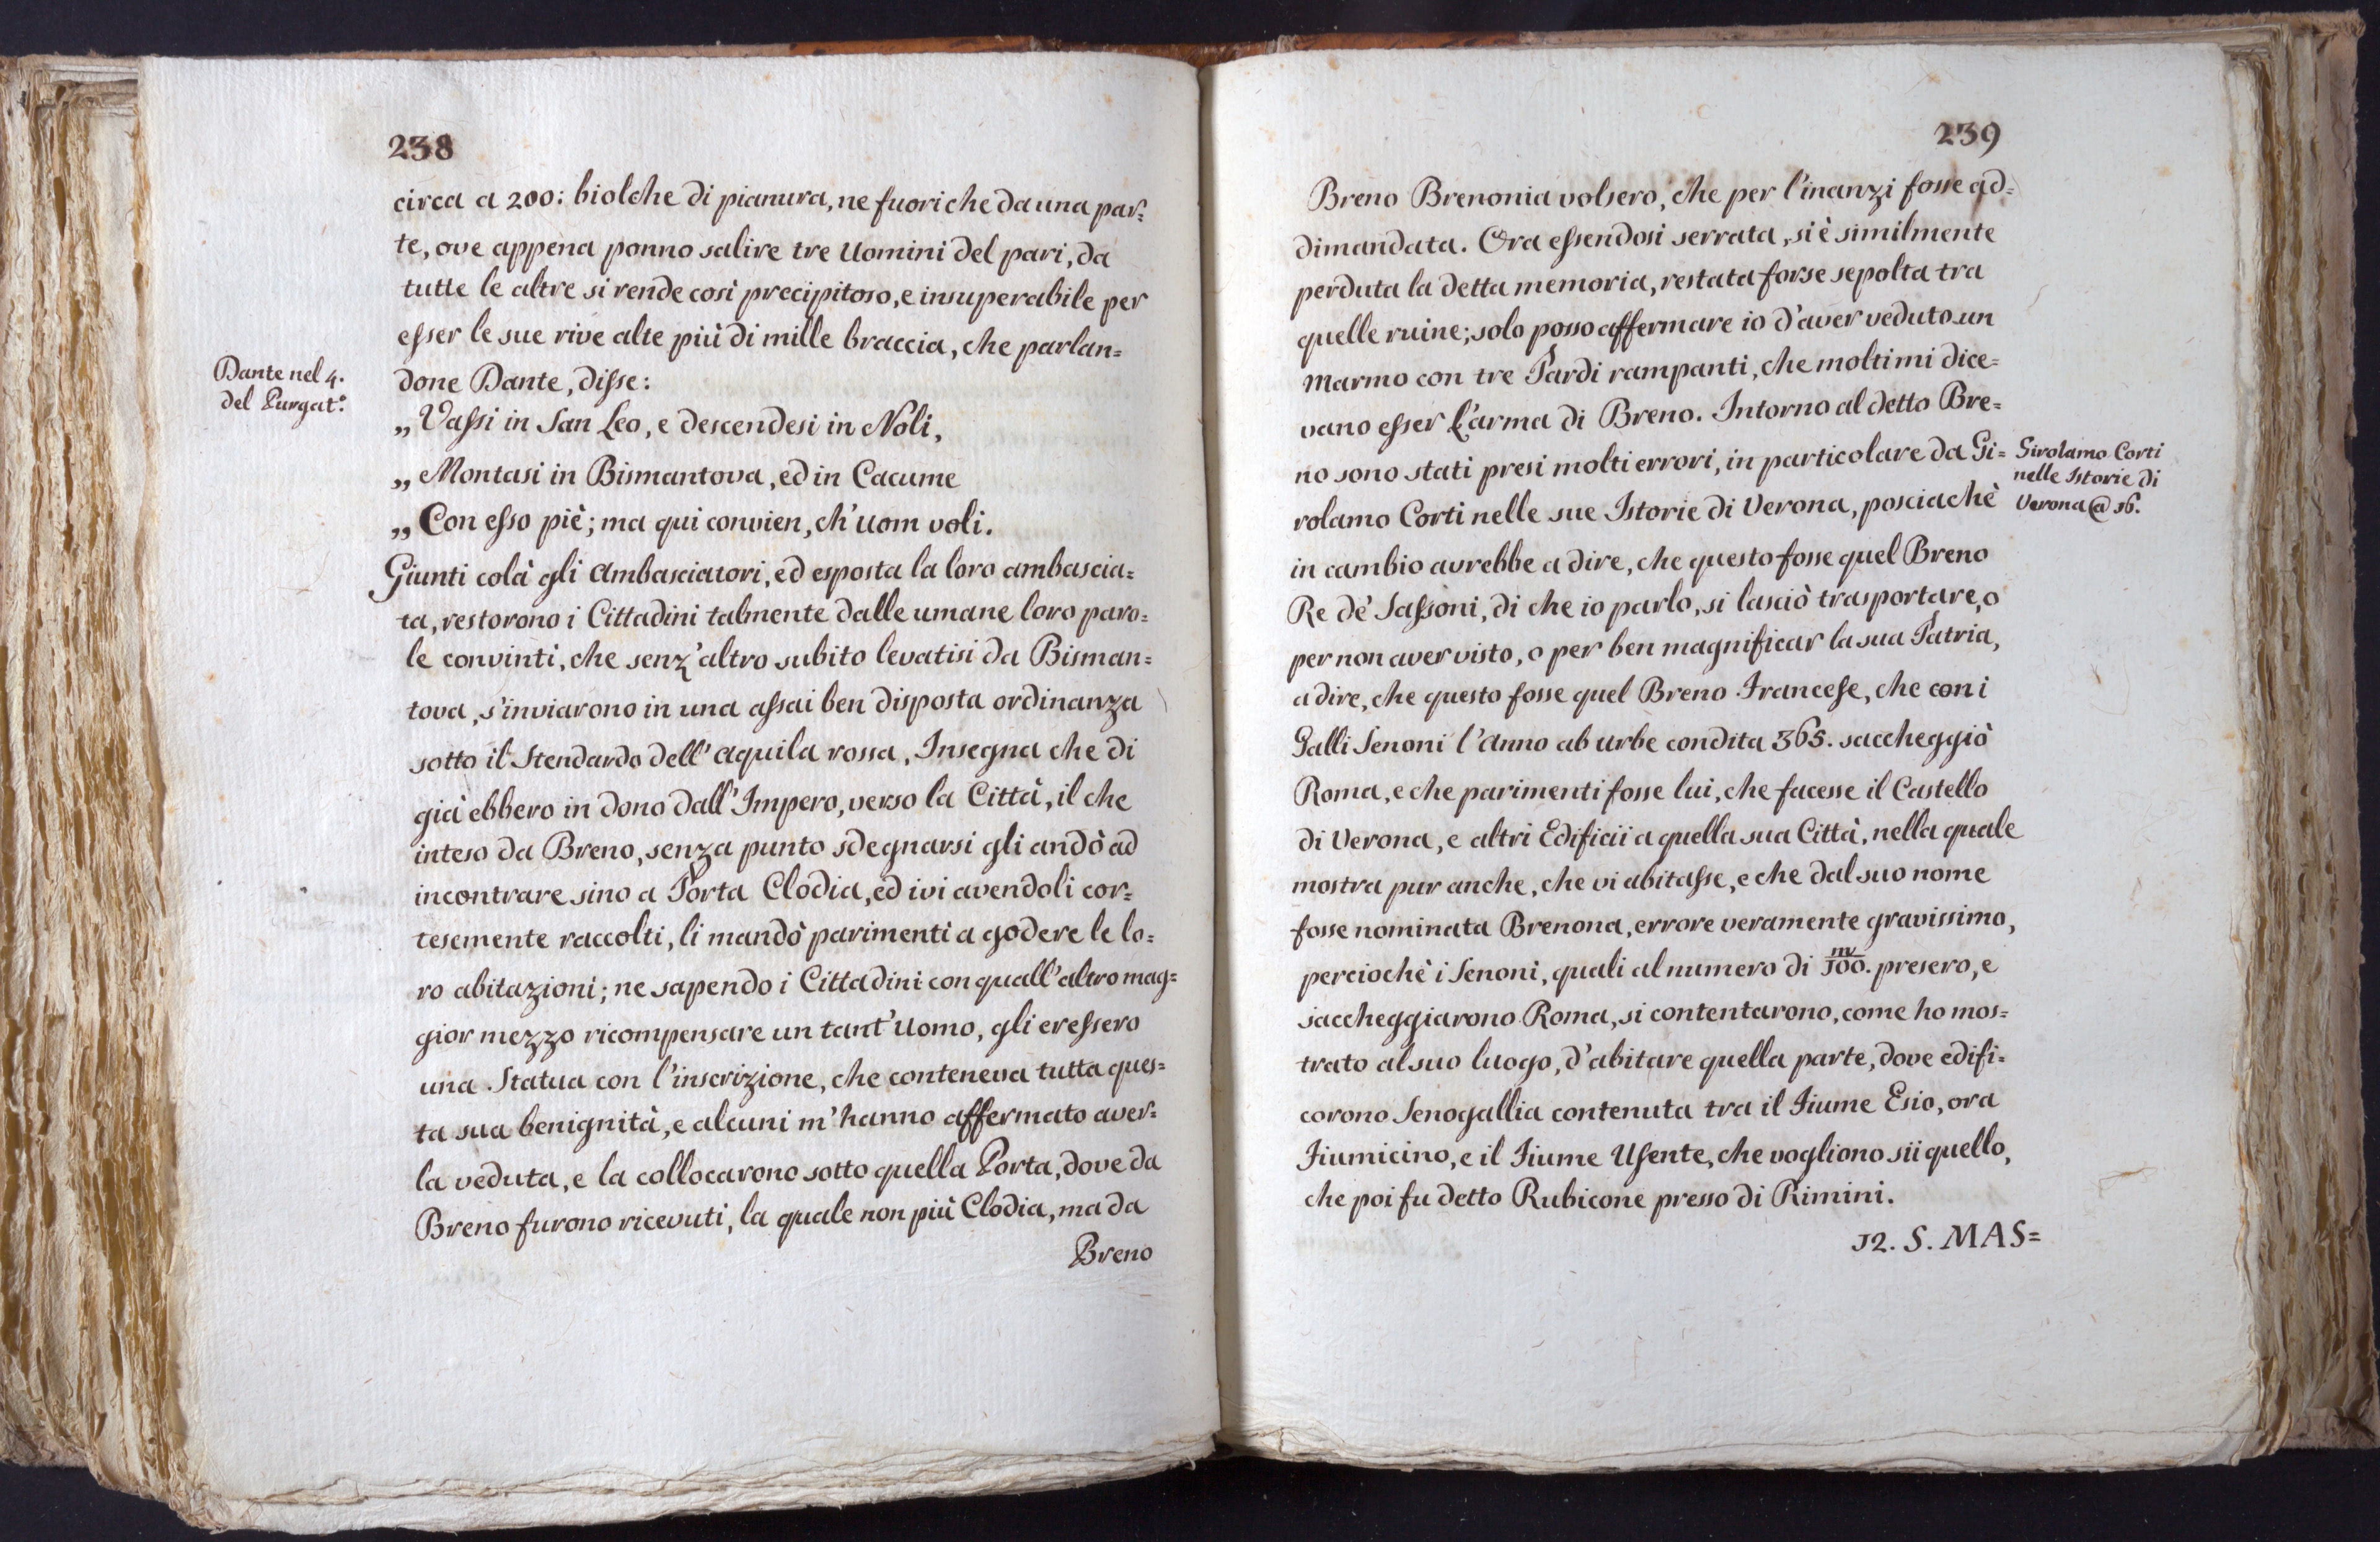 238
circa a 200: biolche di pianura, ne fuoriche da una par=
te, ove appena ponno salire tre Uomini del pari, da
tutte le altre si rende così precipitoso, e insuperabile per
esser le sue rive alte più di mille braccia, che parlan=
Dante nel 4.
del Purgat.º
done Dante, disse:
„ Vassi in San Leo, e descendesi in Noli,
„ Montasi in Bismantova, ed in Cacume
„ Con esso piè; ma qui convien, ch'uom voli.
Giunti colà gli Ambasciatori, ed esposta la loro ambascia=
ta, restorono i Cittadini talmente dalle umane loro paro=
le convinti, che senz'altro subito levatisi da Bisman=
tova, s'inviarono in una assai ben disposta ordinanza
sotto il Stendardo dell'Aquila rossa, Insegna che di
già ebbero in dono dall'Impero, verso la Città, il che
inteso da Breno, senza punto sdegnarsi gli andò ad
incontrare sino a Porta Clodia, ed ivi avendoli cor=
tesemente raccolti, li mandò parimenti a godere le lo=
ro abitazioni; ne sapendo i Cittadini con quall'altro mag=
gior mezzo ricompensare un tant'Uomo, gli eressero
una Statua con l'inscrizione, che conteneva tutta ques=
ta sua benignità, e alcuni m'hanno affermato aver=
la veduta, e la collocarono sotto quella Porta, dove da
Breno furono ricevuti, la quale non più Clodia, ma da
Breno
239
Breno Brenonia volsero, che per l'inanzi fosse ad=
dimandata. Ora essendosi serrata, si è similmente
perduta la detta memoria, restata forse sepolta tra
quelle ruine; solo posso affermare io d'aver veduto un
Marmo con tre Pardi rampanti, che molti mi dice=
vano esser l'arma di Breno. Intorno al detto Bre=
no sono stati presi molti errori, in particolare da Gi=
rolamo Corti nelle sue Istorie di Verona, posciachè
Girolamo Corti
nelle Istorie di
Verona @ 16.
in cambio avrebbe a dire, che questo fosse quel Breno
Re de' Sassoni, di che io parlo, si lasciò trasportare, o
per non aver visto, o per ben magnificar la sua Patria,
a dire, che questo fosse quel Breno Francese, che con i
Galli Senoni l'Anno ab urbe condita 365. saccheggiò
Roma, e che parimenti fosse lui, che facesse il Castello
di Verona, e altri Edificii a quella sua Città, nella quale
mostra pur anche, che vi abitasse, e che dal suo nome
fosse nominata Brenona, errore veramente gravissimo,
perciochè i Senoni, quali al numero di 300.m presero, e
saccheggiarono Roma, si contentarono, come ho mos=
trato al suo luogo, d'abitare quella parte, dove edifi=
corono Senogallia contenuta tra il Fiume Esio, ora
Fiumicino, e il Fiume Usente, che vogliono sii quello,
che poi fu detto Rubicone presso di Rimini.
12. S. MAS=